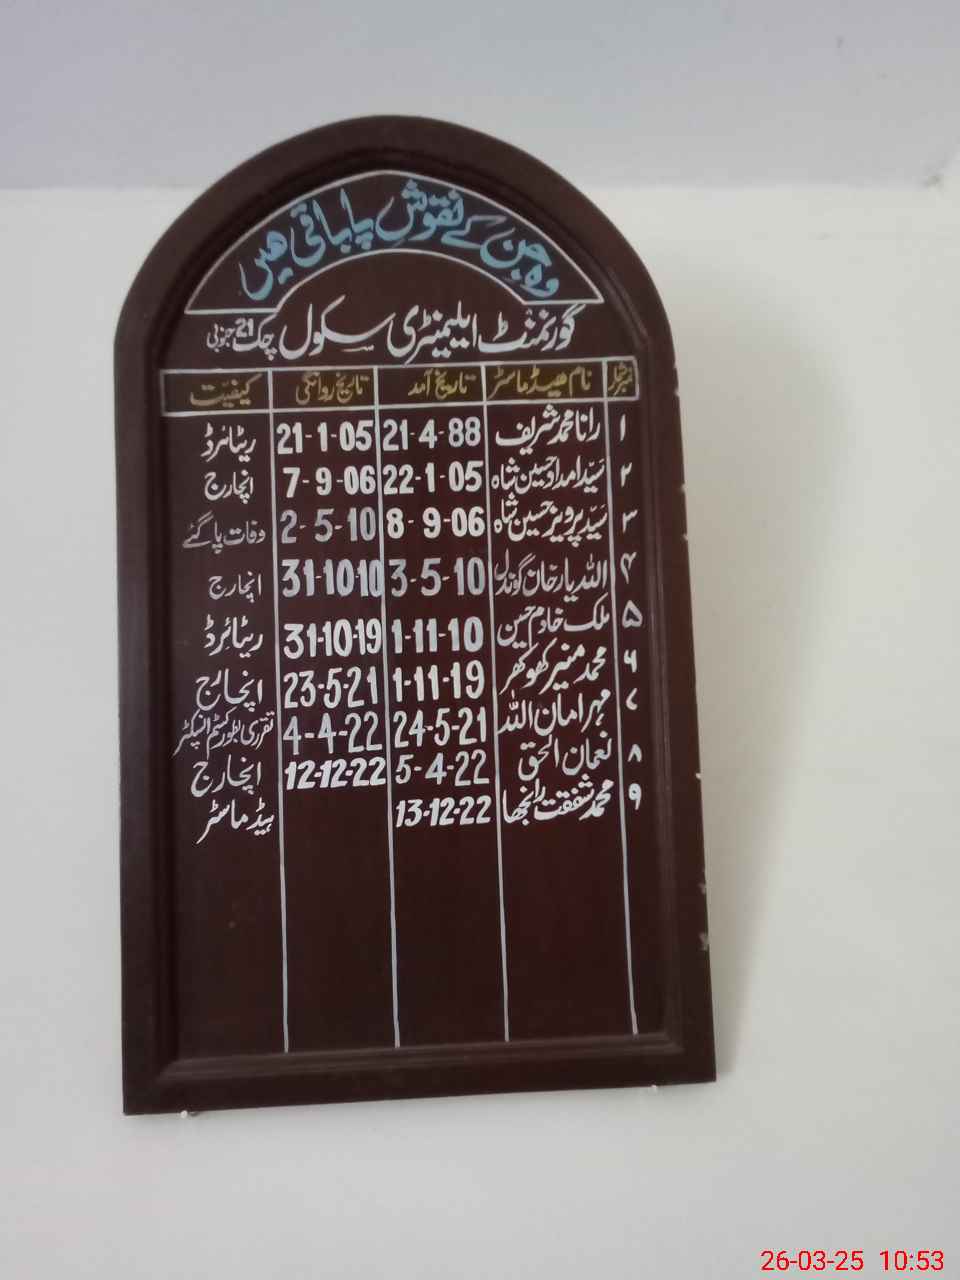 وہ جن کے نقوشِ پا باقی ھیں
گورنمنٹ ایلیمنٹری سکول چک 21 جنوبی
نمبر شمار نام ھیڈ ماسٹر تاریخ آمد تاریخ روانگی کیفیّت
۱ رانا محمد شریف 21-4-88 21-1-05 ریٹائرڈ
۲ سیّد امداد حسین شاہ 22-1-05 7-9-06 انچارج
۳ سیّد پرویز حسین شاہ 8-9-06 2-5-10 وفات پا گئے
۴ اللہ یار خان گوندل 3-5-10 31-10-10 انچارج
۵ ملک خادم حسین 1-11-10 31-10-19 ریٹائرڈ
۶ محمد منیر کھوکھر 1-11-19 23-5-21 انچارج
۷ مہر امان اللہ 24-5-21 4-4-22 تقرری بطور کسٹم انسپکٹر
۸ نعمان الحق 5-4-22 12-12-22 انچارج
۹ محمد شفقت رانجھا 13-12-22 ہیڈ ماسٹر
26-03-25 10:53